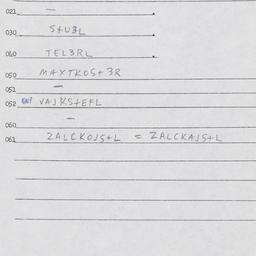 021 —
030 StU3L
040 TEL3RL
050 MAXTKOSt3R
051 —
052 EN! VAJKStEFL
060 —
061 ZALCKOJStL = ZALCKAJStL